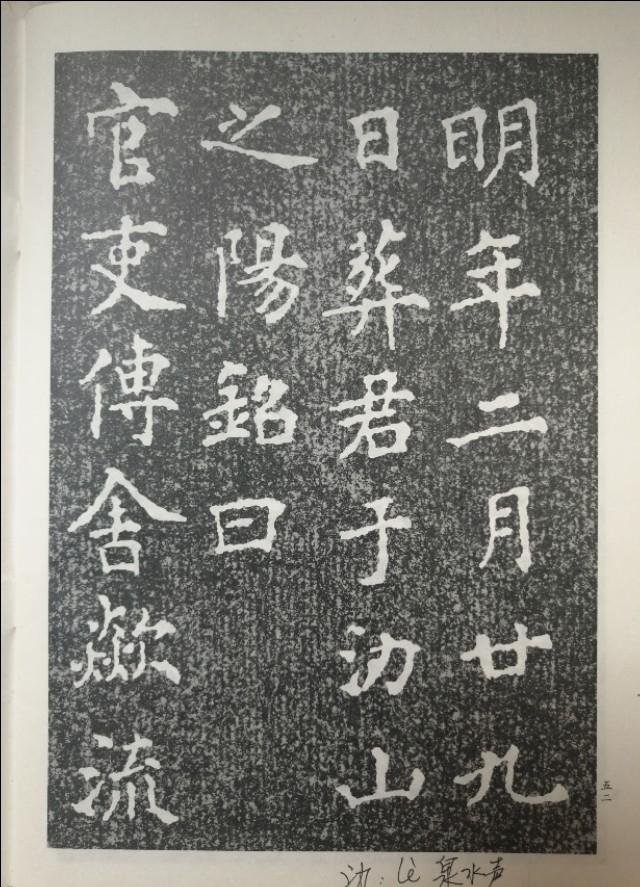 明年二月廿九
日葬君于氻山
之陽銘曰
官吏傳舍歘流
五二
氻：lè 泉水声